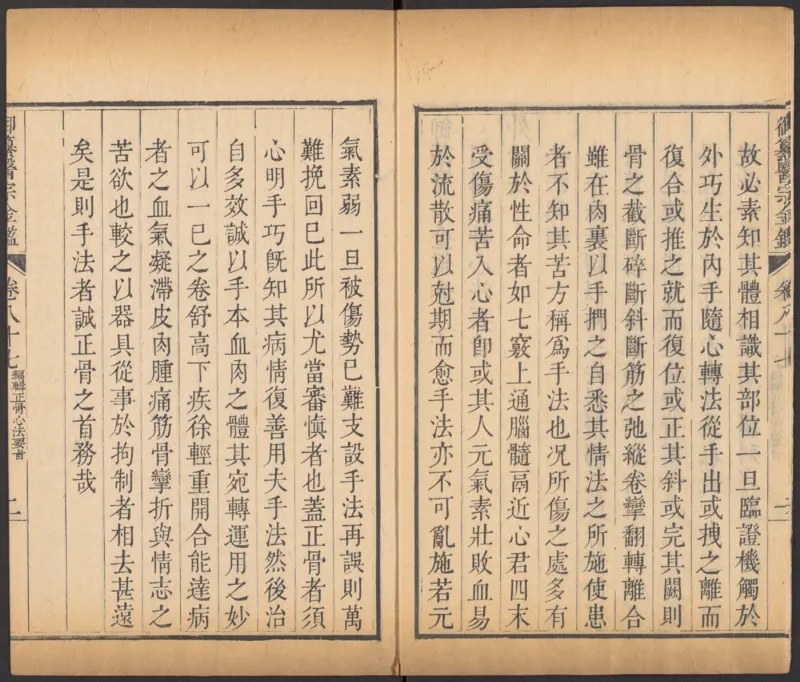 故必素知其體相識其部位一旦臨證機觸於
外巧生於內手隨心轉法從手出或拽之離而
復合或推之就而復位或正其斜或完其闕則
骨之截斷碎斷斜斷筋之弛縱卷攣翻轉離合
雖在肉裏以手捫之自悉其情法之所施使患
者不知其苦方稱爲手法也况所傷之處多有
關於性命者如七竅上通腦髓鬲近心君四末
受傷痛苦入心者卽或其人元氣素壯敗血易
於流散可以尅期而愈手法亦不可亂施若元
氣素弱一旦被傷勢已難支設手法再誤則萬
難挽回已此所以尤當審愼者也蓋正骨者須
心明手巧旣知其病情復善用夫手法然後治
自多效誠以手本血肉之體其宛轉運用之妙
可以一已之卷舒高下疾徐輕重開合能達病
者之血氣凝滯皮肉腫痛筋骨攣折與情志之
苦欲也較之以器具從事於拘制者相去甚遠
矣是則手法者誠正骨之首務哉
御纂醫宗金鑑 卷八十七 編輯正骨心法要旨 二